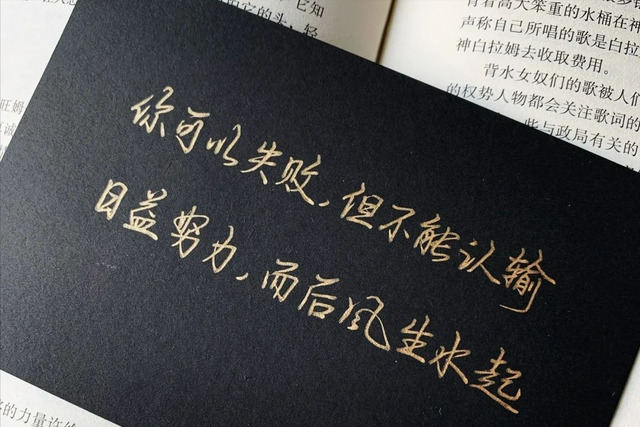 它知
的头！轻
背着高大笨重的水桶在神
声称自己所唱的歌是白拉
神白拉姆去收取费用。
背水女奴们的歌被人们
的权势人物都会关注歌词的
些与政局有关的
你可以失败，但不能认输
日益努力，而后风生水起
旺姆
诚
的力量许